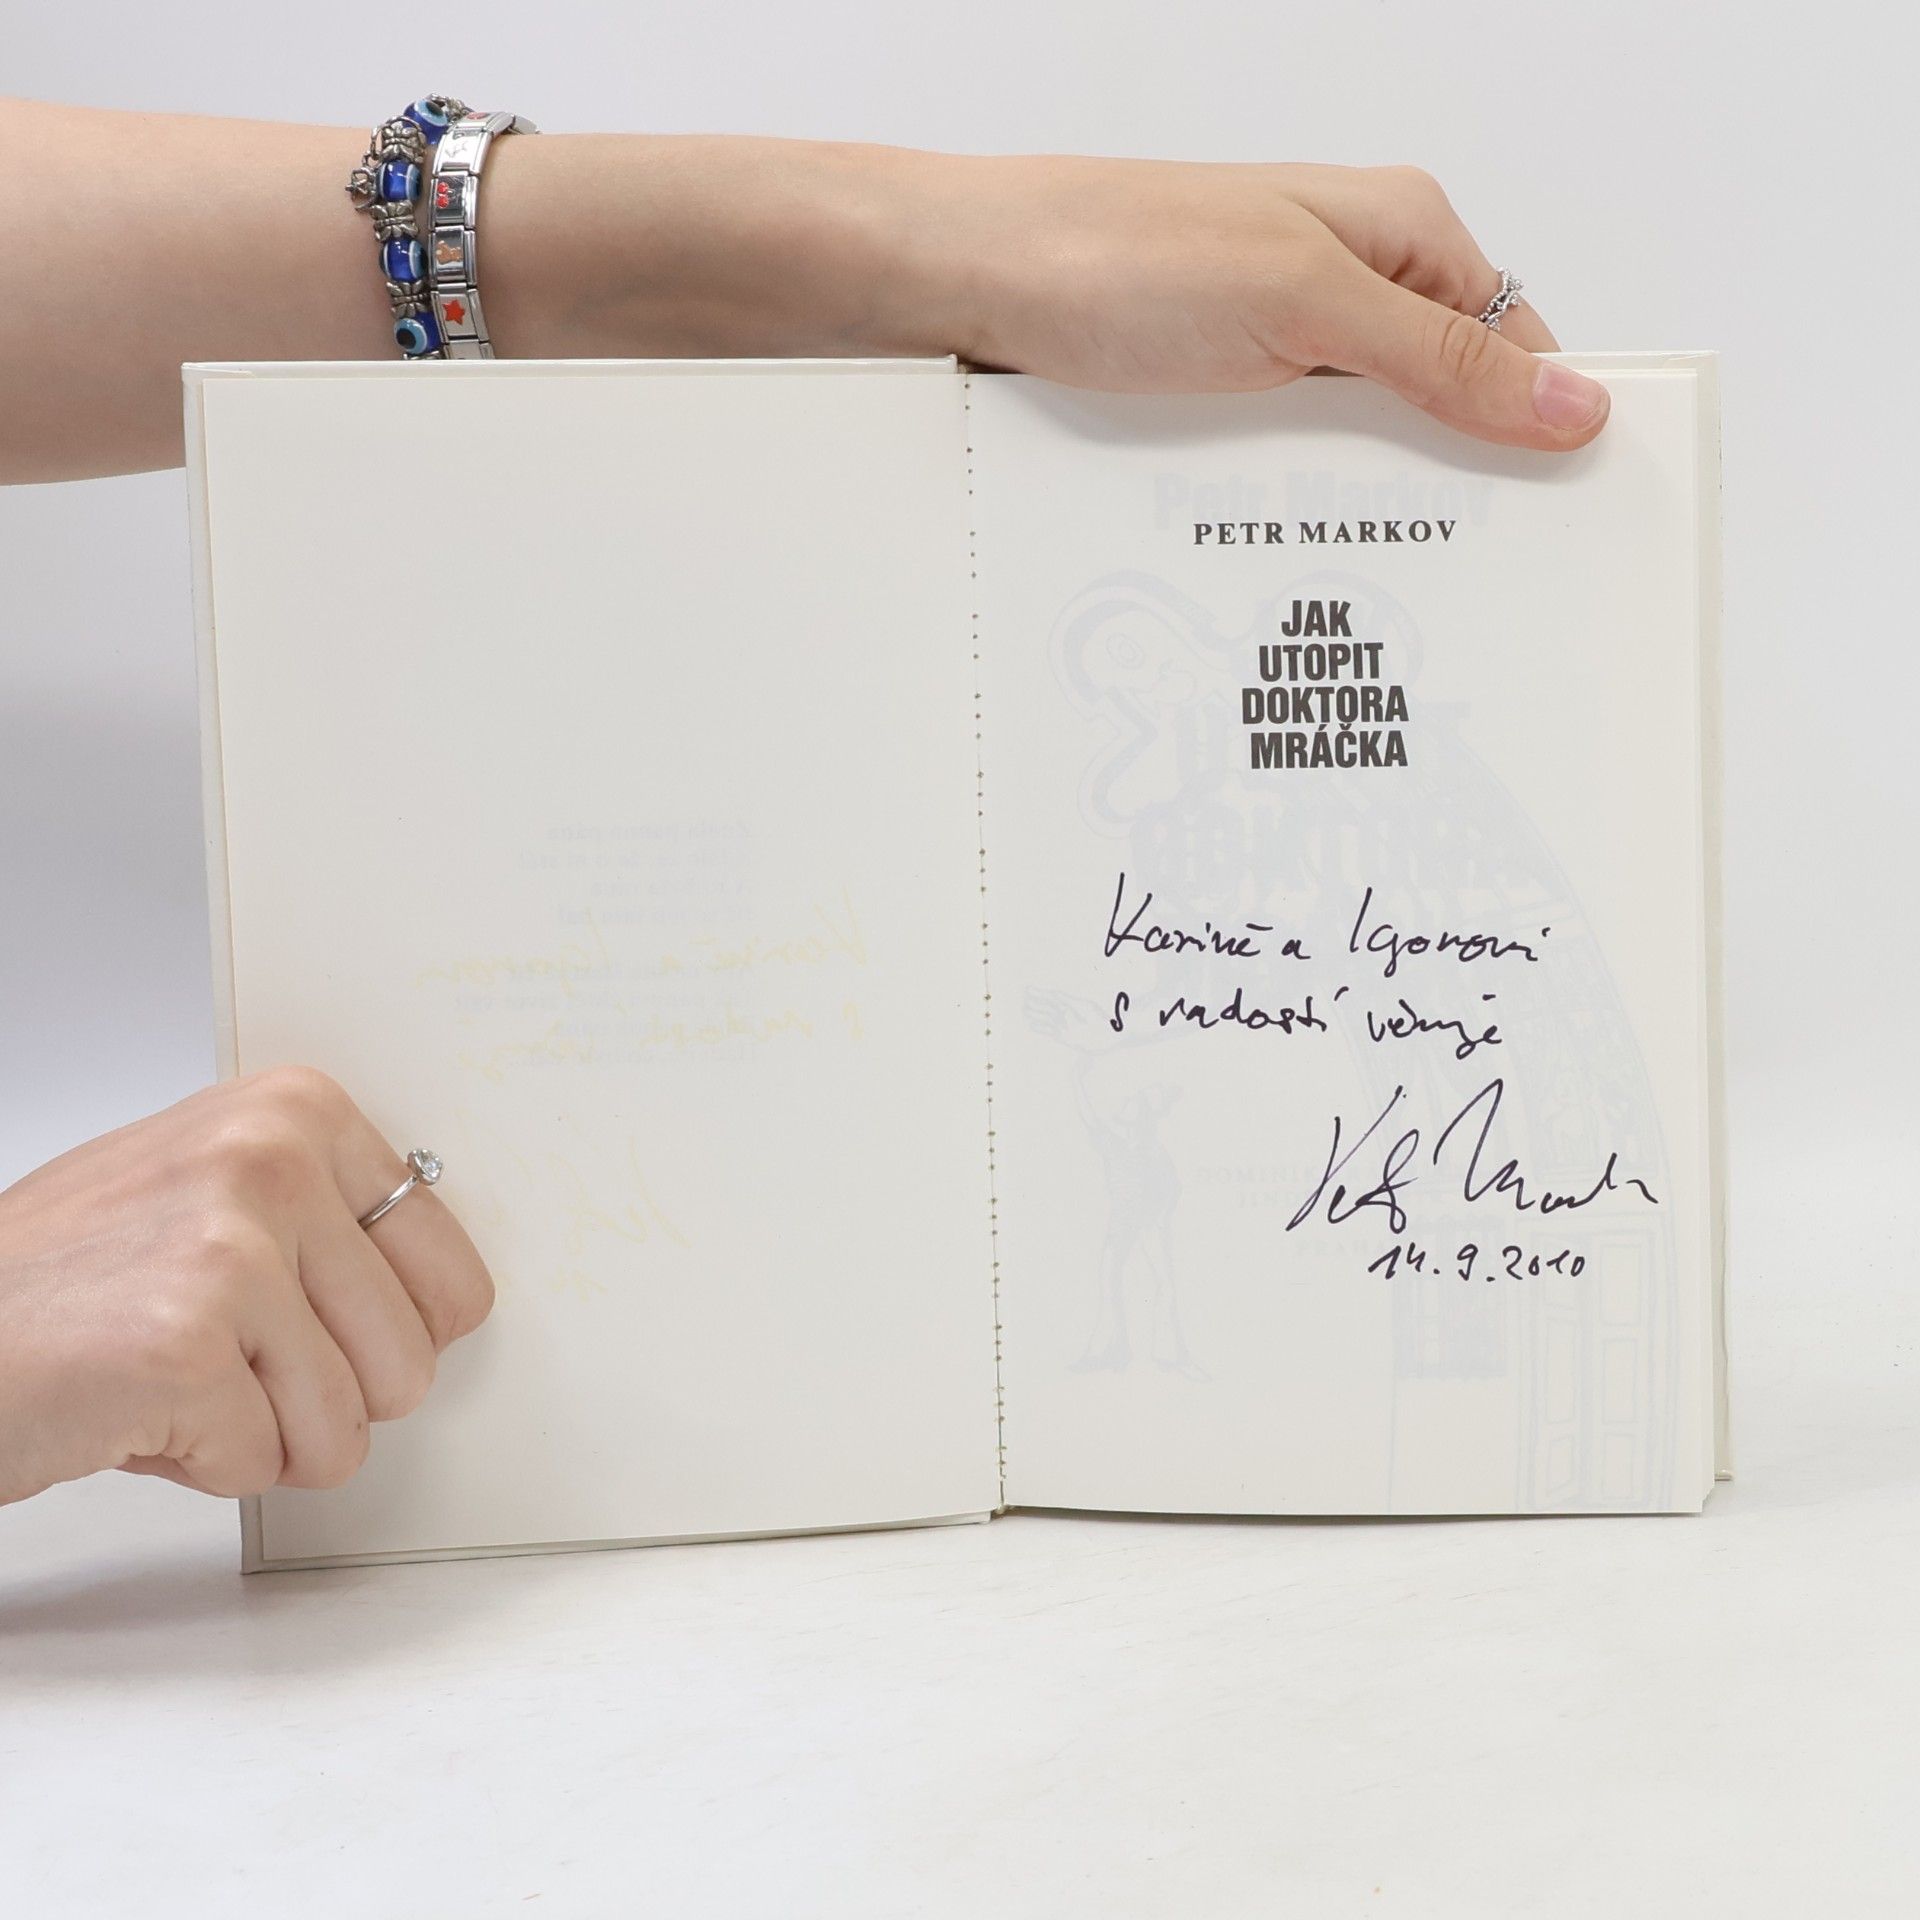 PETR MARKOV
JAK
UTOPIT
DOKTORA
MRÁČKA
Karině a Igorovi
s radostí věnuje
Petr Markov
14.9.2010